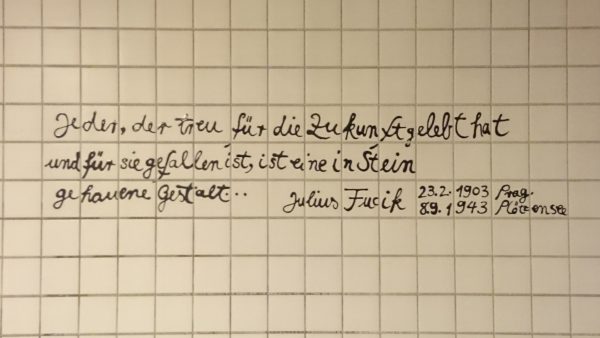 Jeder, der treu für die Zukunft gelebt hat
und für sie gefallen ist, ist eine in Stein
gehauene Gestalt..
Julius Fucik 23.2.1903 Prag.
8.9.1943 Plötzensee